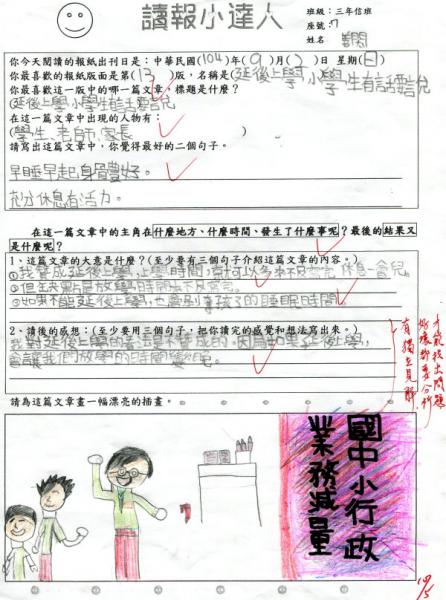 讀報小達人
班級：三年信班
座號：17
姓名
你今天閱讀的報紙出刊日是：中華民國(104)年(9)月(2)日 星期(日)
你最喜歡的報紙版面是第(13)版，名稱是(延後上學，小學生有話要說)
你最喜歡這一版中的哪一篇文章，標題是什麼？
(延後上學小學生有話要說)
在這一篇文章中出現的人物有：
(學生、老師、家長)
請寫出這篇文章中，你覺得最好的二個句子。
早睡早起身體好。
充分休息有活力。
在這一篇文章中的主角在什麼地方、什麼時間、發生了什麼事呢？最後的結果又
是什麼呢？
1、這篇文章的大意是什麼？(至少要有三個句子介紹這篇文章的內容。)
①我贊成延後上學，上學時間，
休息一會兒。
②但
放學時間
③如果不能延後上學，也會剝奪孩子的睡眠時間
2、讀後的感想：(至少要用三個句子，把你讀完的感覺和想法寫出來。)
我對延後上學的看法是不贊成的。因為如果延後上學，
會讓我們放學的時間變
有獨立見解
好壞都要分析
才能找出問題
請為這篇文章畫一幅漂亮的插畫。
國中小行政
業務減量